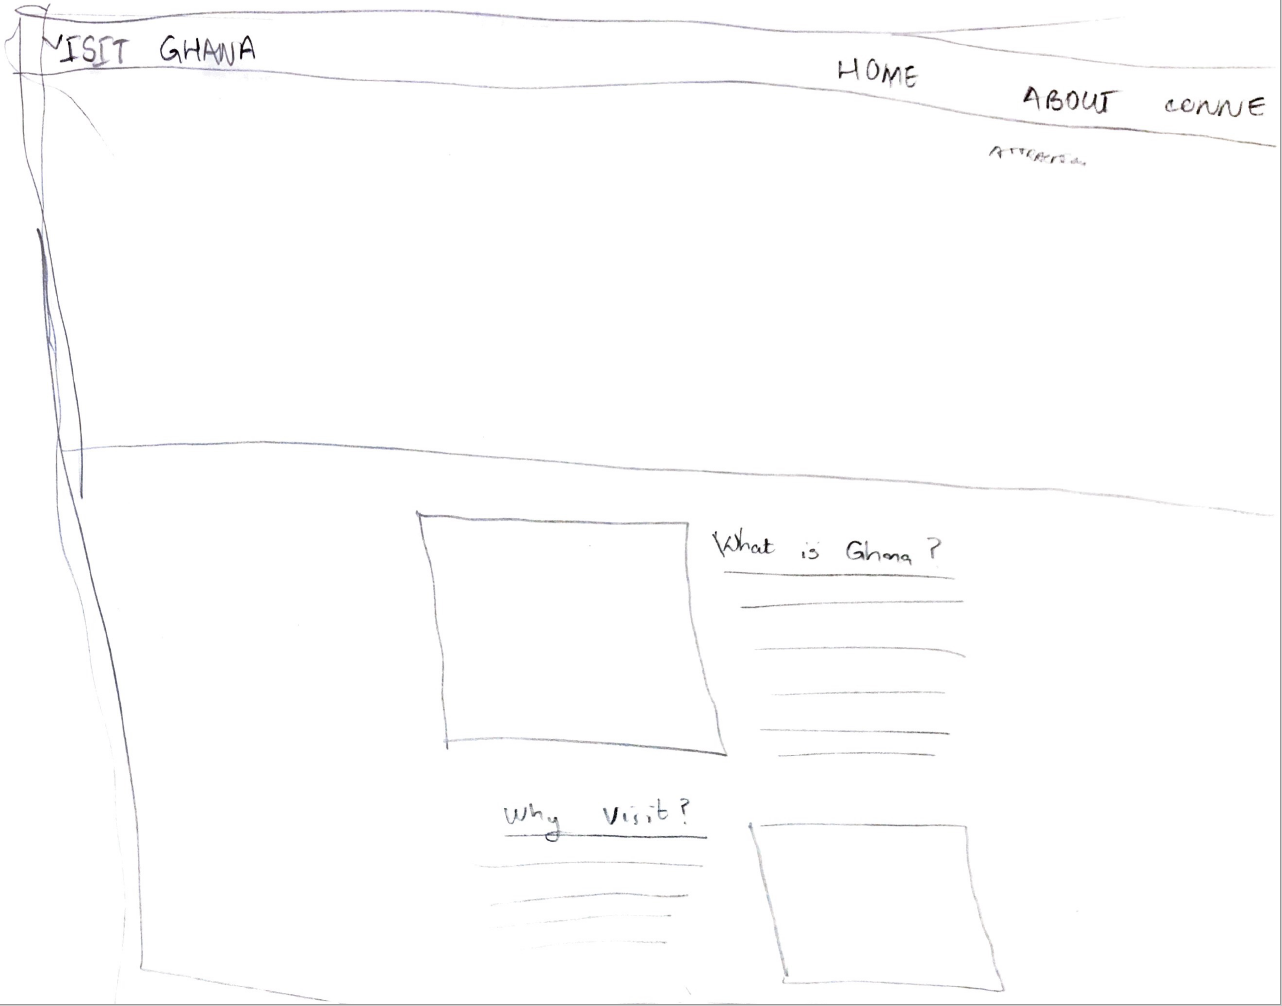 VISIT GHANA
HOME
ABOUT CONNE
What is Ghana?
Why Visit?